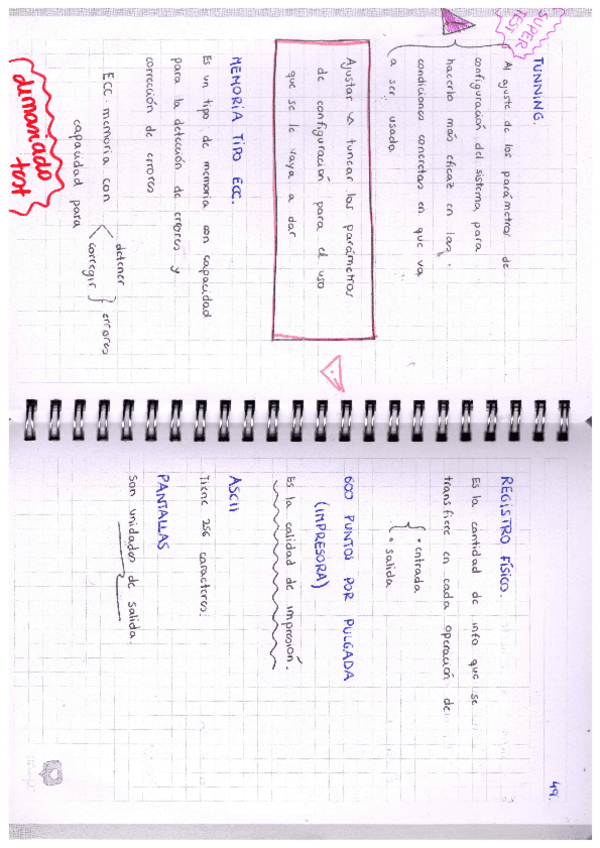 SUPER
TEST
TUNNING.
Al ajuste de los parámetros de
configuración del sistema para
hacerlo más eficaz en las
condiciones concretas en que va
a ser usado
Ajustar o tunear los parámetros
de configuración para el uso
que se le vaya a dar
MEMORIA TIPO ECC.
Es un tipo de memoria con capacidad
para la detección de errores y
corrección de errores
ECC: memoria con
capacidad para
detener
corregir
errores
dimaniado
test
49.
REGISTRO FÍSICO.
Es la cantidad de info que se
transfiere en cada operación de
• entrada
• salida
600 PUNTOS POR PULGADA
(IMPRESORA)
Es la calidad de impresión.
ASCII
Tiene 256 caracteres.
PANTALLAS
Son unidades de salida.